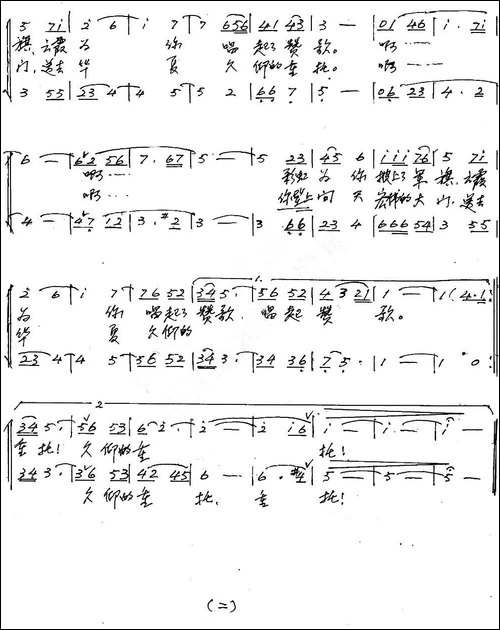 5 7i | 2 6 | i 7 | 7 656 | 41 43 | 3 — | 01 46 | i . 7i |
旗，云霞 为 你 唱 起了 赞 歌。 啊……
门，送去 华 夏 久 仰的 重 托。 啊……
3 55 | 23 4 | 4 5 | 5 2 | 66 7 | 5 — | 06 23 | 4 . 2 |
6 — | 62 56 | 7 . 67 | 5 — | 5 23 | 45 6 | iii 76 | 5 7i
啊…… 彩虹 为 你 披上了 军 旗，云霞
啊…… 你登上 问 天 宏伟的 大 门，送去
4 — | 47 12 | 3 . #2 | 3 — | 3 66 | 23 4 | 666 54 | 3 55
1.
2 6 | i 7 | 76 52 | 34 5 . | 56 52 | 4 3 21 | 1 — | 1 (4.1 :|
为 你 唱起了 赞歌， 唱起 赞 歌。
华 夏 久仰的
23 4 | 4 5 | 56 52 | 34 3 . | 34 36 | 7 5 . | 1 — | 1 0 :|
2
34 5 . | 56 53 | 6 2 . | 2 — | 2 i6 | i — | i — | i —
重 托！ 久 仰的 重 托！
34 3 . | 36 53 | 42 45 | 6 — | 6 . #4 | 5 — | 5 — | 5 —
久 仰的 重 托， 重 托！
(二)